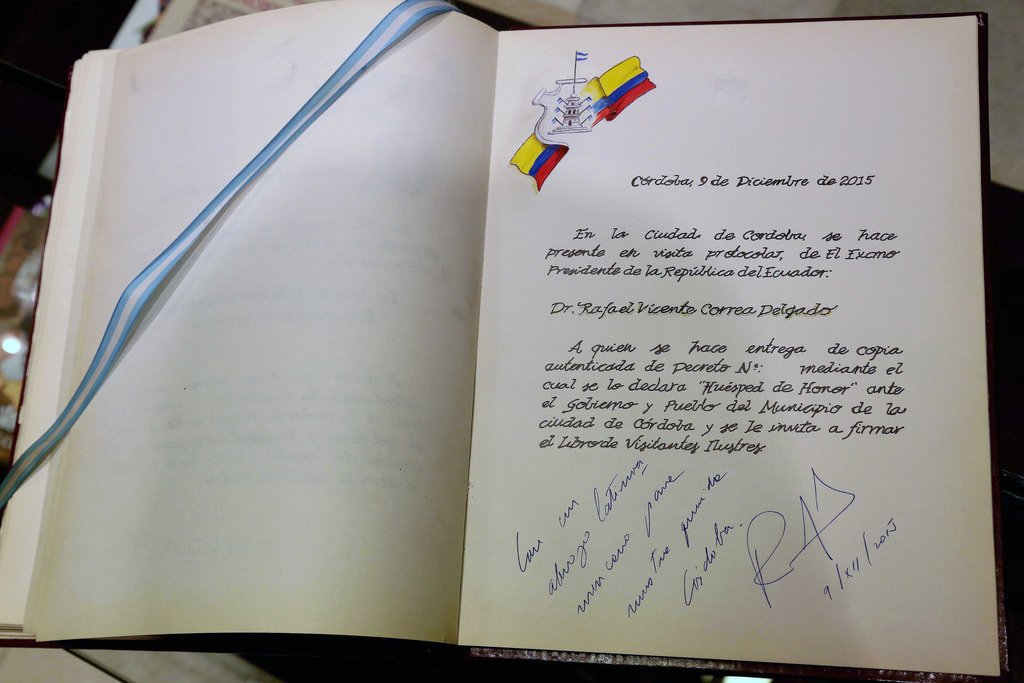 Córdoba, 9 de Diciembre de 2015
En la Ciudad de Córdoba, se hace
presente en visita protocolar, de El Excmo
Presidente de la República del Ecuador:
Dr. Rafael Vicente Correa Delgado
A quien se hace entrega de copia
autenticada de Decreto Nº: mediante el
cual se lo declara "Huésped de Honor" ante
el Gobierno y Pueblo del Municipio de la
ciudad de Córdoba y se le invita a firmar
el Libro de Visitantes Ilustres.
Con un
abrazo latinoa
mericano para
nuestra querida
Córdoba.
9/XII/2015